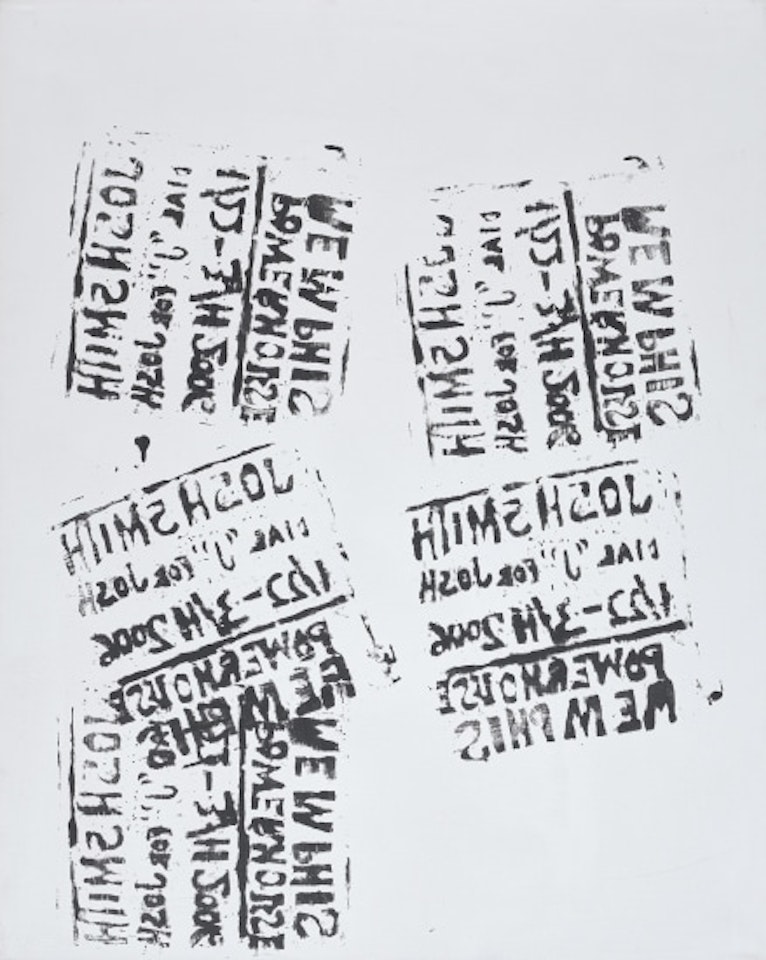 JOSH SMITH
DIAL "J" FOR JOSH
1/22-3/4 2006
POWERHOUSE
MEMPHIS
JOSH SMITH
DIAL "J" FOR JOSH
1/22-3/4 2006
POWERHOUSE
MEMPHIS
JOSH SMITH
DIAL "J" FOR JOSH
1/22-3/4 2006
POWERHOUSE
JOSH SMITH
DIAL "J" FOR JOSH
1/22-3/4 2006
POWERHOUSE
MEMPHIS
JOSH SMITH
"J" FOR JOSH
-3/4 2006
POWERHOUSE
MEMPHIS